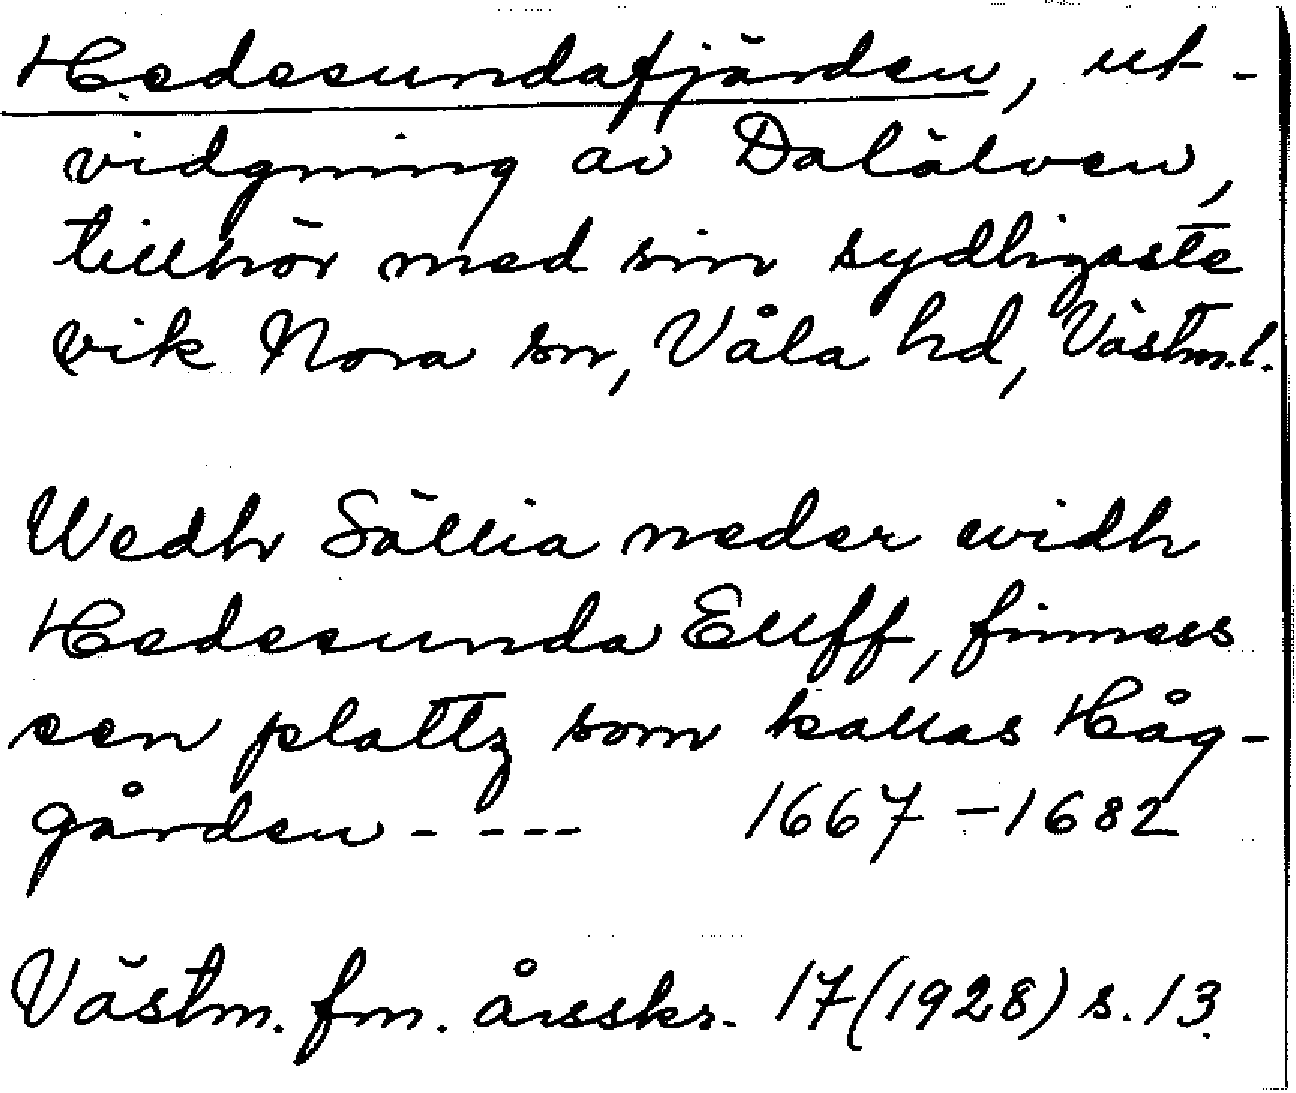 Hedesundafjärden, ut-
vidgning av Dalälven,
tillhör med sin sydligaste
vik Nora sn, Våla hd, Västm.l.
Wedh Sällia neder widh
Hedesunda Ellff, finness
een plattz som kallas Håg-
gården - - - - 1667-1682
Västm. fm. årsskr. 17(1928) s. 13.